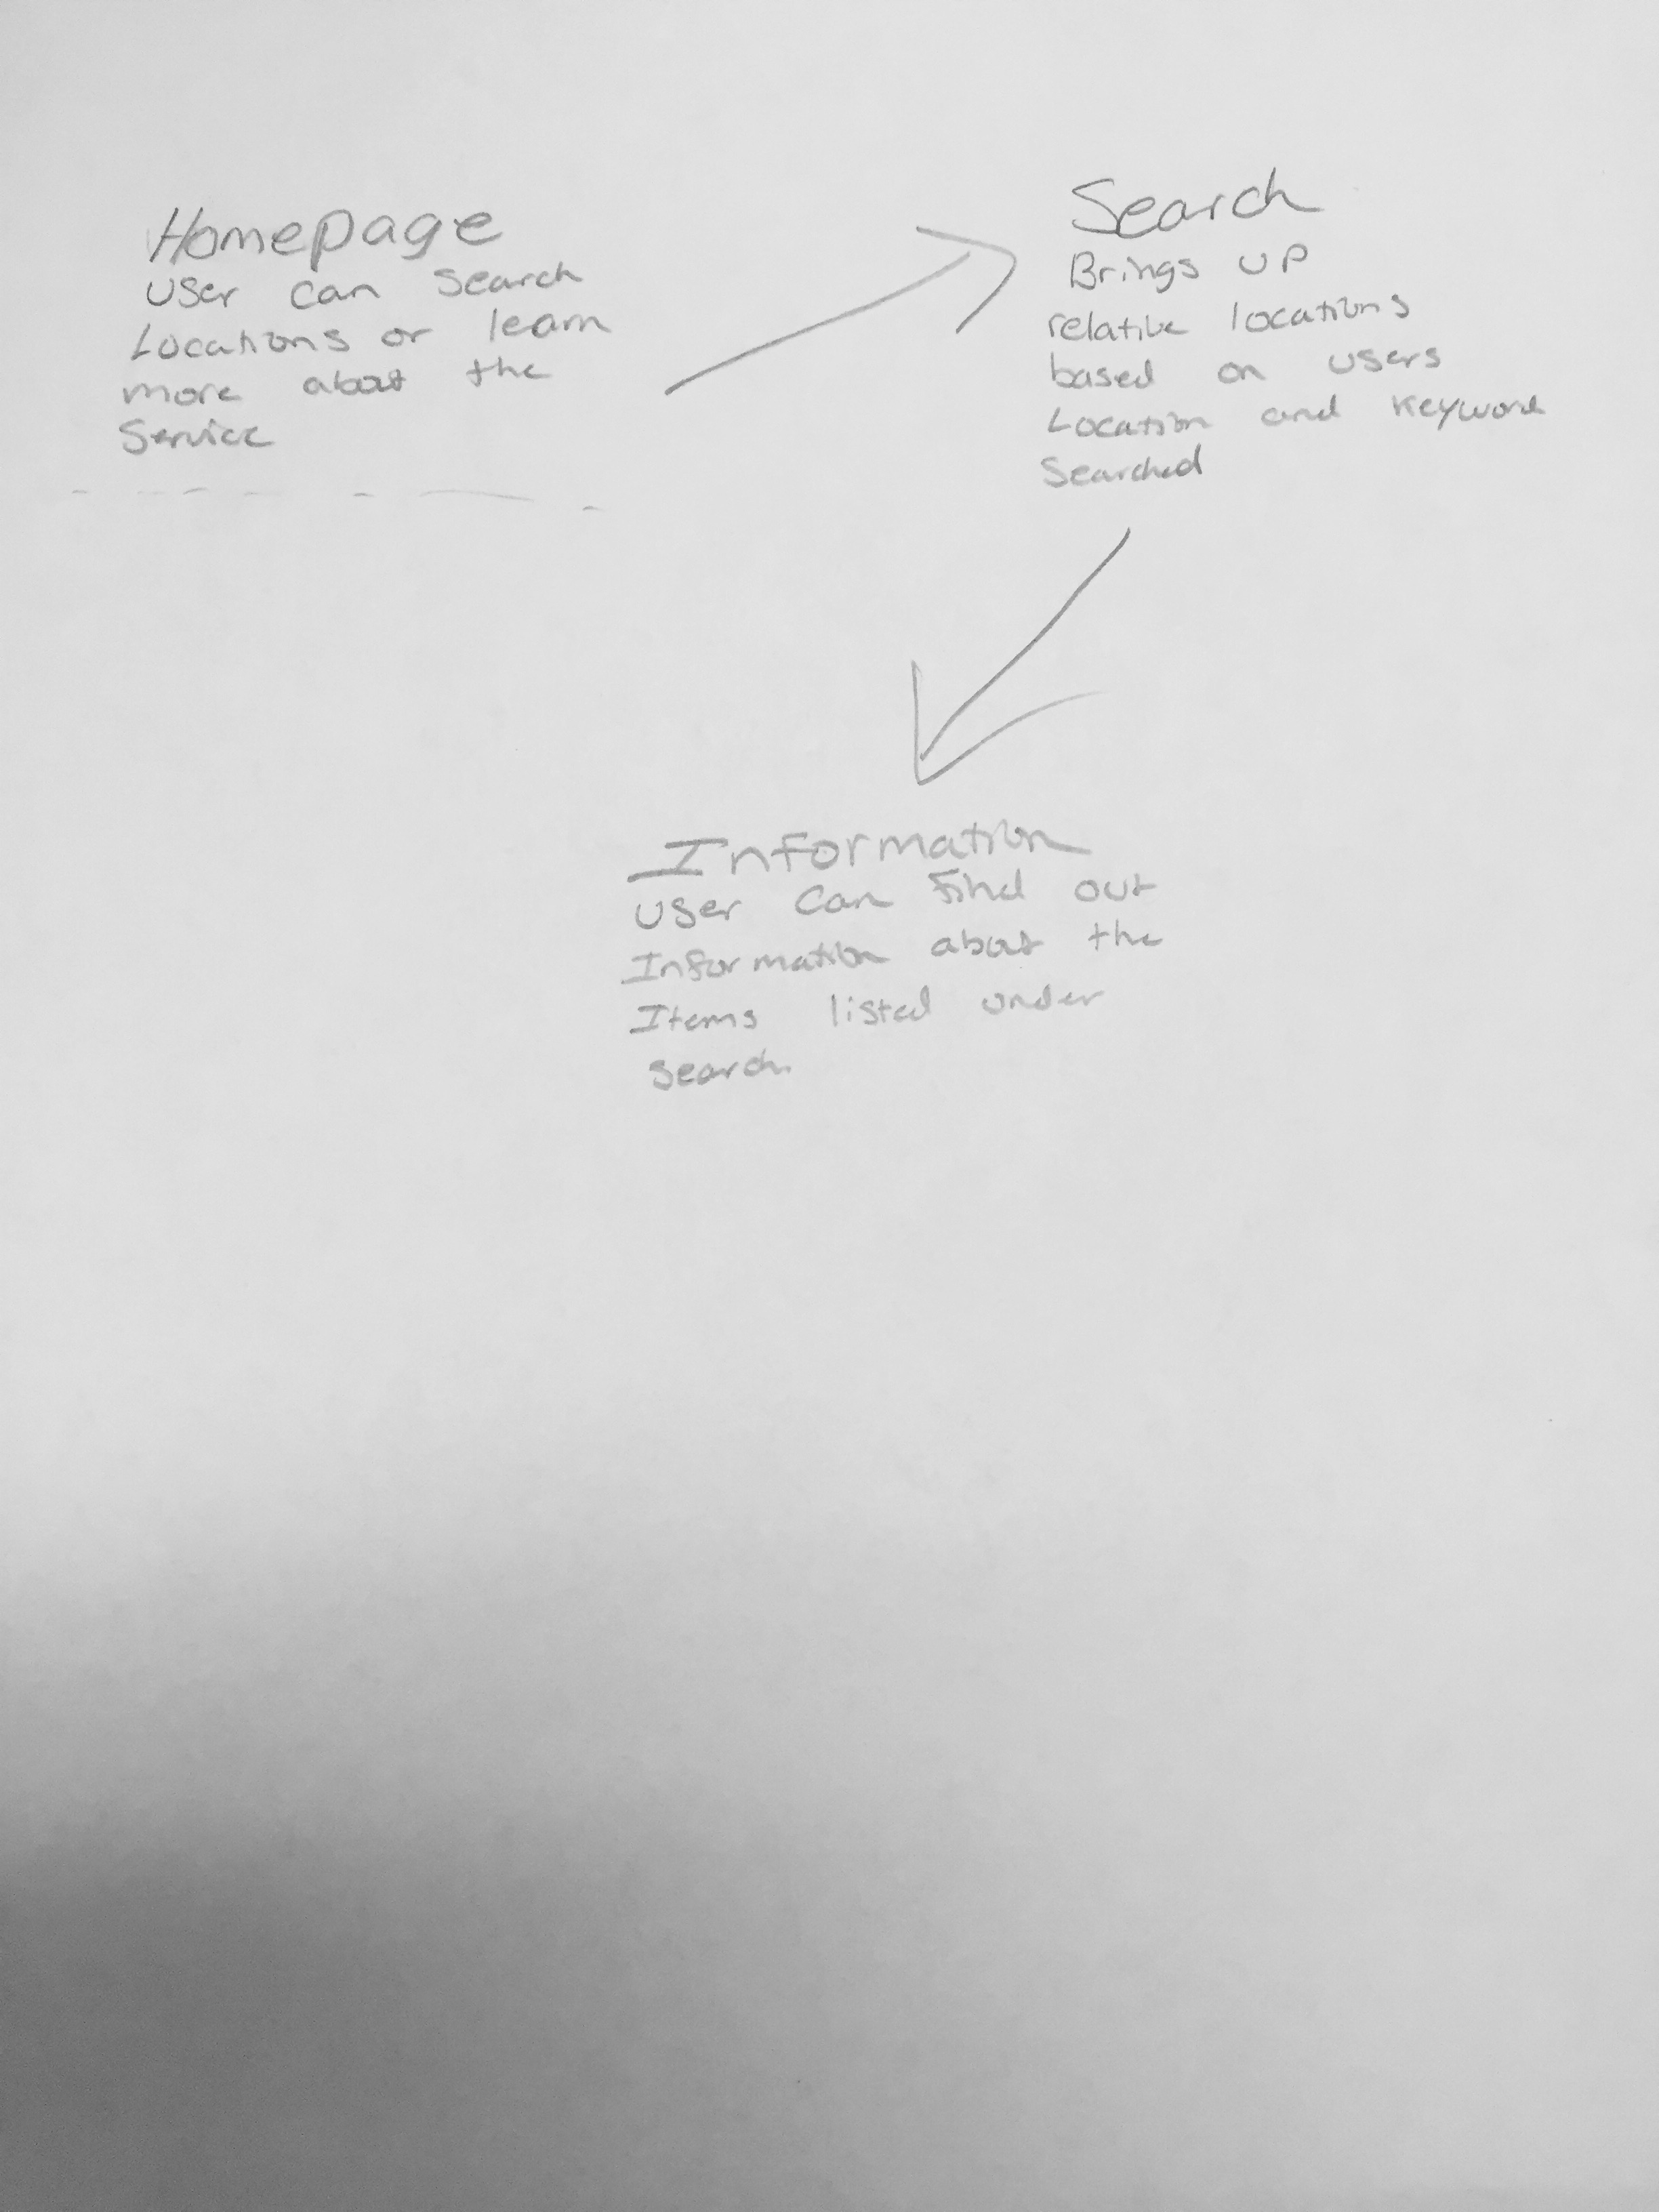 Homepage
User can Search
Locations or learn
more about the
Service
Search
Brings up
relative locations
based on users
Location and keyword
Searched
Information
User can find out
Information about the
Items listed under
search.